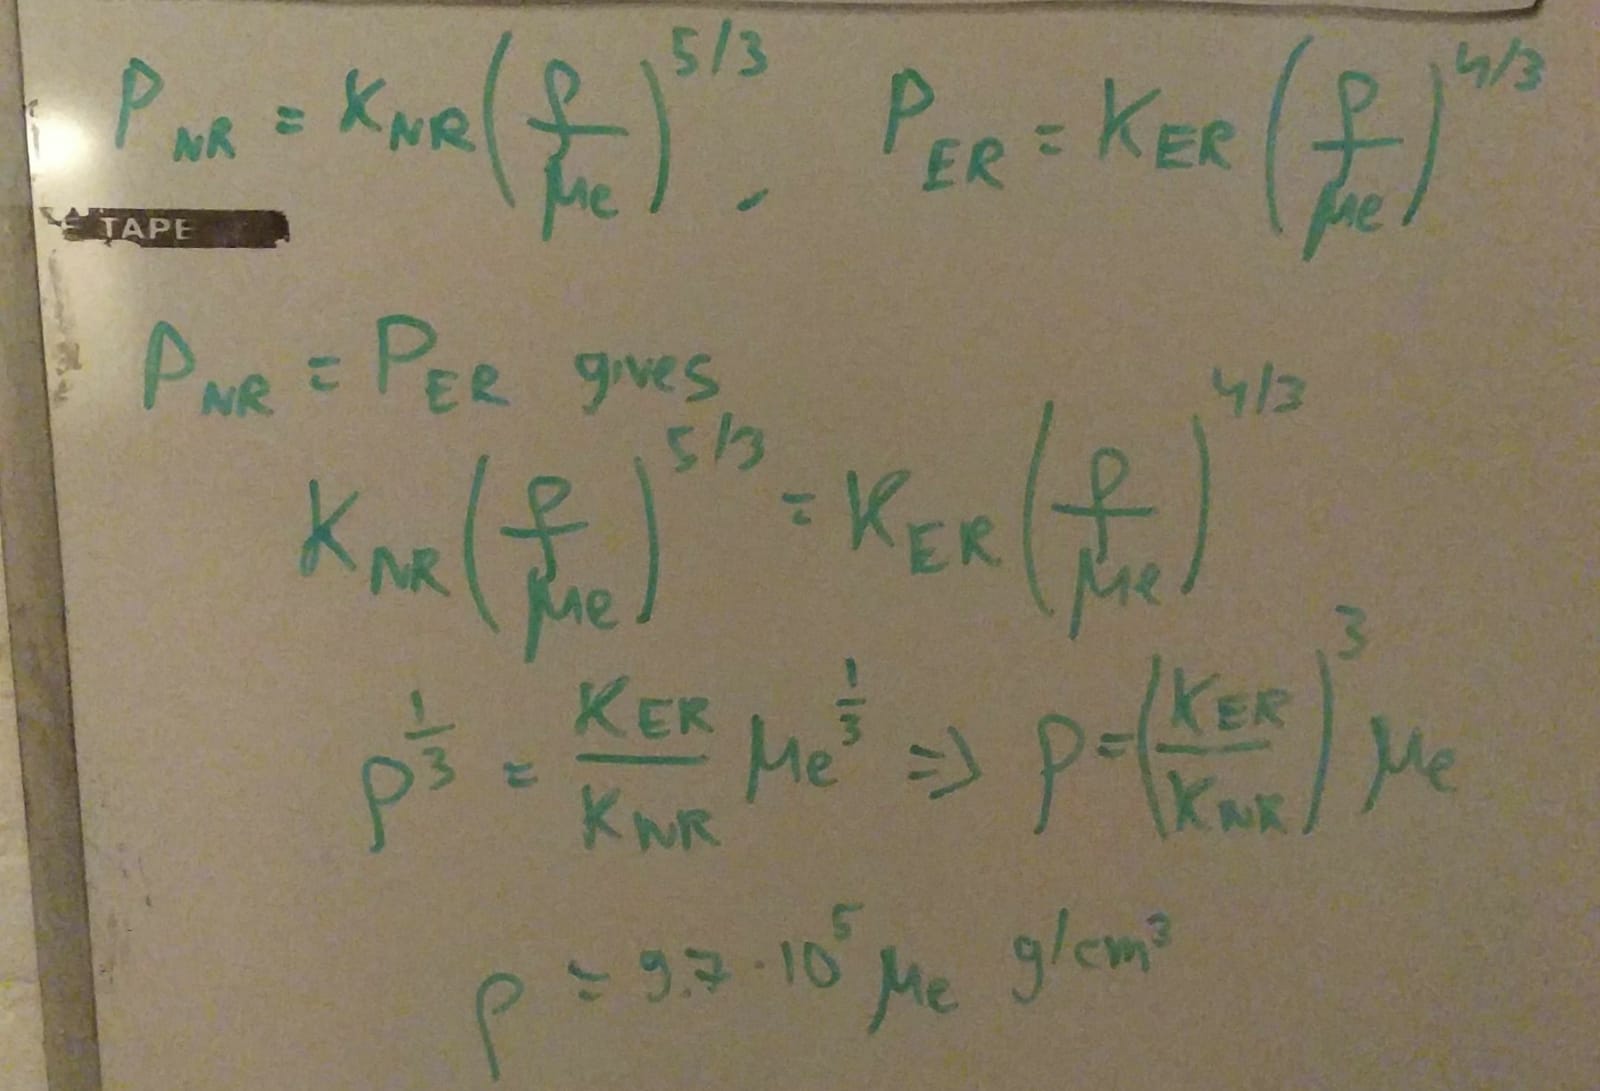 P_NR = K_NR (ρ/μe)^5/3 , P_ER = K_ER (ρ/μe)^4/3
TAPE
P_NR = P_ER gives
K_NR (ρ/μe)^5/3 = K_ER (ρ/μe)^4/3
ρ^1/3 = K_ER/K_NR μe^1/3 ⇒ ρ = (K_ER/K_NR)^3 μe
ρ = 9.7 · 10^5 μe g/cm^3